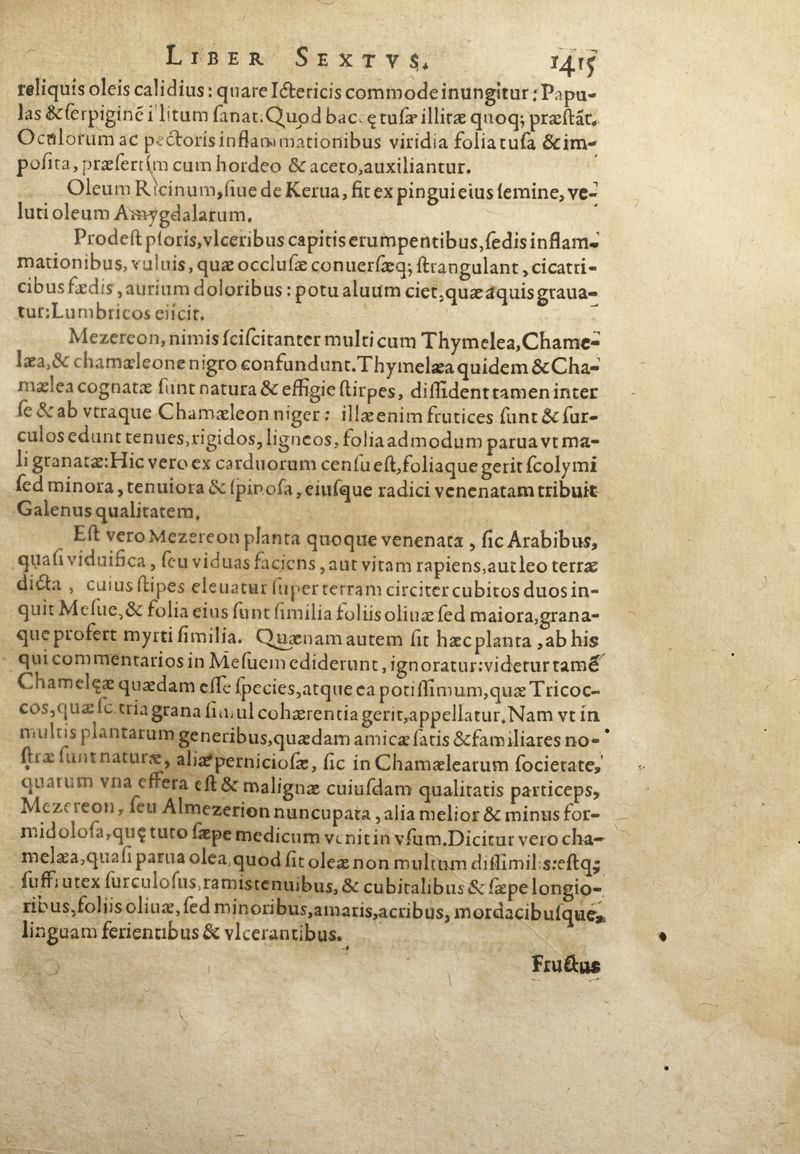 LIBER SEXTVS. 1415
reliquis oleis calidius: quare Ictericis commode inungitur: Papu-
las & serpiginē illitum sanat. Quod bac. ę tusæ illitæ quoq; præstāt.
Oculorum ac pectoris inflammationibus viridia folia tusa & im-
posita, præsertim cum hordeo & aceto, auxiliantur.
Oleum Ricinum, siue de Kerua, fit ex pingui eius semine, ve-
luti oleum Amygdalarum.
Prodest psoris, vlceribus capitis erumpentibus, sedis inflam-
mationibus, vuluis, quæ occlusæ conuersæq; strangulant, cicatri-
cibus fædis, aurium doloribus: potu aluum ciet, quæ aquis graua-
tur: Lumbricos eiicit.
Mezereon, nimis scifcitanter multi cum Thymelea, Chame-
læa, & chamæleone nigro confundunt. Thymelæa quidem & Cha-
mælea cognatæ sunt natura & effigie stirpes, dissident tamen inter
se & ab vtraque Chamæleon niger: illæ enim frutices sunt & sur-
culos edunt tenues, rigidos, ligneos, folia admodum parua vt ma-
li granatæ: Hic vero ex carduorum censu est, foliaque gerit scolymi
sed minora, tenuiora & spinosa, eiusque radici venenatam tribuit
Galenus qualitatem.
Est vero Mezereon planta quoque venenata, sic Arabibus,
quasi viduifica, seu viduas faciens, aut vitam rapiens, aut leo terræ
dicta, cuius stipes eleuatur super terram circiter cubitos duos in-
quit Mesue, & folia eius sunt similia foliis oliuæ sed maiora, grana-
que profert myrti similia. Quænam autem sit hæc planta, ab his
qui commentarios in Mesuem ediderunt, ignoratur: videtur tamē
Chamelęæ quædam esse species, atque ea potissimum, quæ Tricoc-
cos, quæ sc. tria grana simul cohærentia gerit, appellatur. Nam vt in
multis plantarum generibus, quædam amicæ satis & familiares no-
stræ sunt naturæ, aliæ perniciosæ, sic in Chamælearum societate,
quarum vna effera est & malignæ cuiusdam qualitatis particeps,
Mezereon, seu Almezerion nuncupata, alia melior & minus for-
midolosa, quę tuto sæpe medicum venit in vsum. Dicitur vero cha-
melæa, quasi parua olea, quod sit oleæ non multum dissimilis: estq;
suffrutex surculosus, ramis tenuibus, & cubitalibus & sæpe longio-
ribus, foliis oliuæ, sed minoribus, amaris, acribus, mordacibusque,
linguam ferientibus & vlcerantibus.
Fructus